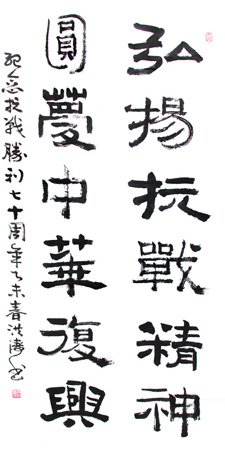 弘揚抗戰精神
圓夢中華復興
紀念抗戰勝利七十周年乙未春洪濤书